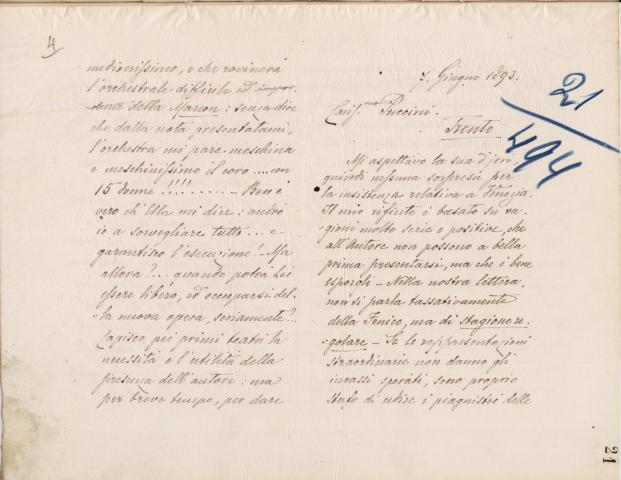 4
mediocrissimo, e che rovinerà
l'orchestrale difficile ed impor-
tente della Manon: senza dire
che dalla nota presentatami,
l'orchestra mi pare meschina
e meschinissimo il coro....con
15 donne!!!!........- Ben è
vero ch'Ella mi dice: andrò
io a sorvegliare tutto... e
garantisco l'esecuzione! - Ma
allora?... quando potrà Lei
essere libero, ed occuparsi del-
la nuova opera, seriamente?..
Capisco pei primi teatri la
necessità e l'utilità della
presenza dell'autore: ma
per breve tempo, per dare
7. Giugno 1893.
Cariss.mo Puccini.
Trento
21/494
Mi aspettavo la sua d'jeri,
quindi nessuna sorpresa per
la insistenza relativa a Venezia.
Il mio rifiuto è basato su ra-
gioni molto serie e positive, che
all'autore non possono a bella
prima presentarsi, ma che è bene
esporgli - Nella nostra lettera,
non si parla tassativamente
della Fenice, ma di stagione re-
golare - Se le rappresentazioni
straordinarie non danno gli
incassi sperati, sono proprio
stufo di udire i piagnistei delle
21